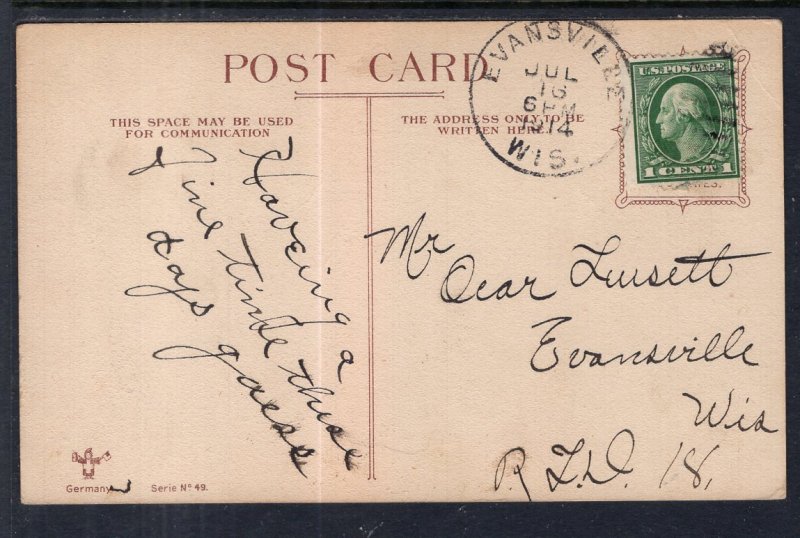 POST CARD
THIS SPACE MAY BE USED
FOR COMMUNICATION
THE ADDRESS ONLY TO BE
WRITTEN HERE
EVANSVILLE
JUL
16
6 PM
1914
WIS.
U.S. POSTAGE
1 CENT 1
Haveing a
fine time these
days
Mr
Ocar
Evansville
Wis
R.F.D. 18,
Germany
Serie Nº 49.